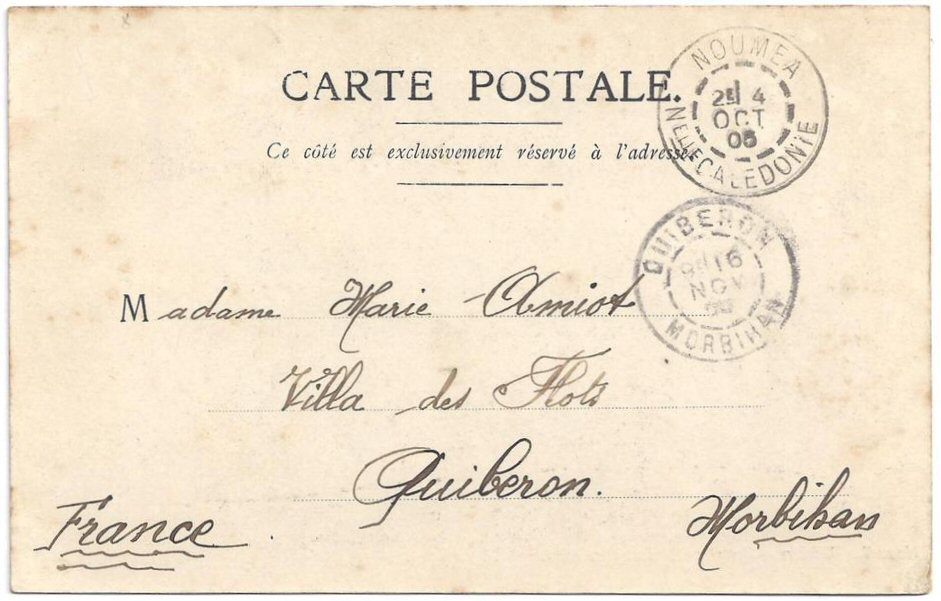 CARTE POSTALE.
Ce côté est exclusivement réservé à l'adresse.
NOUMEA
4
OCT
05
NELLE CALEDONIE
QUIBERON
16
NOV
MORBIHAN
Madame Marie Amiot
Villa des Flots
Quiberon.
France
Morbihan